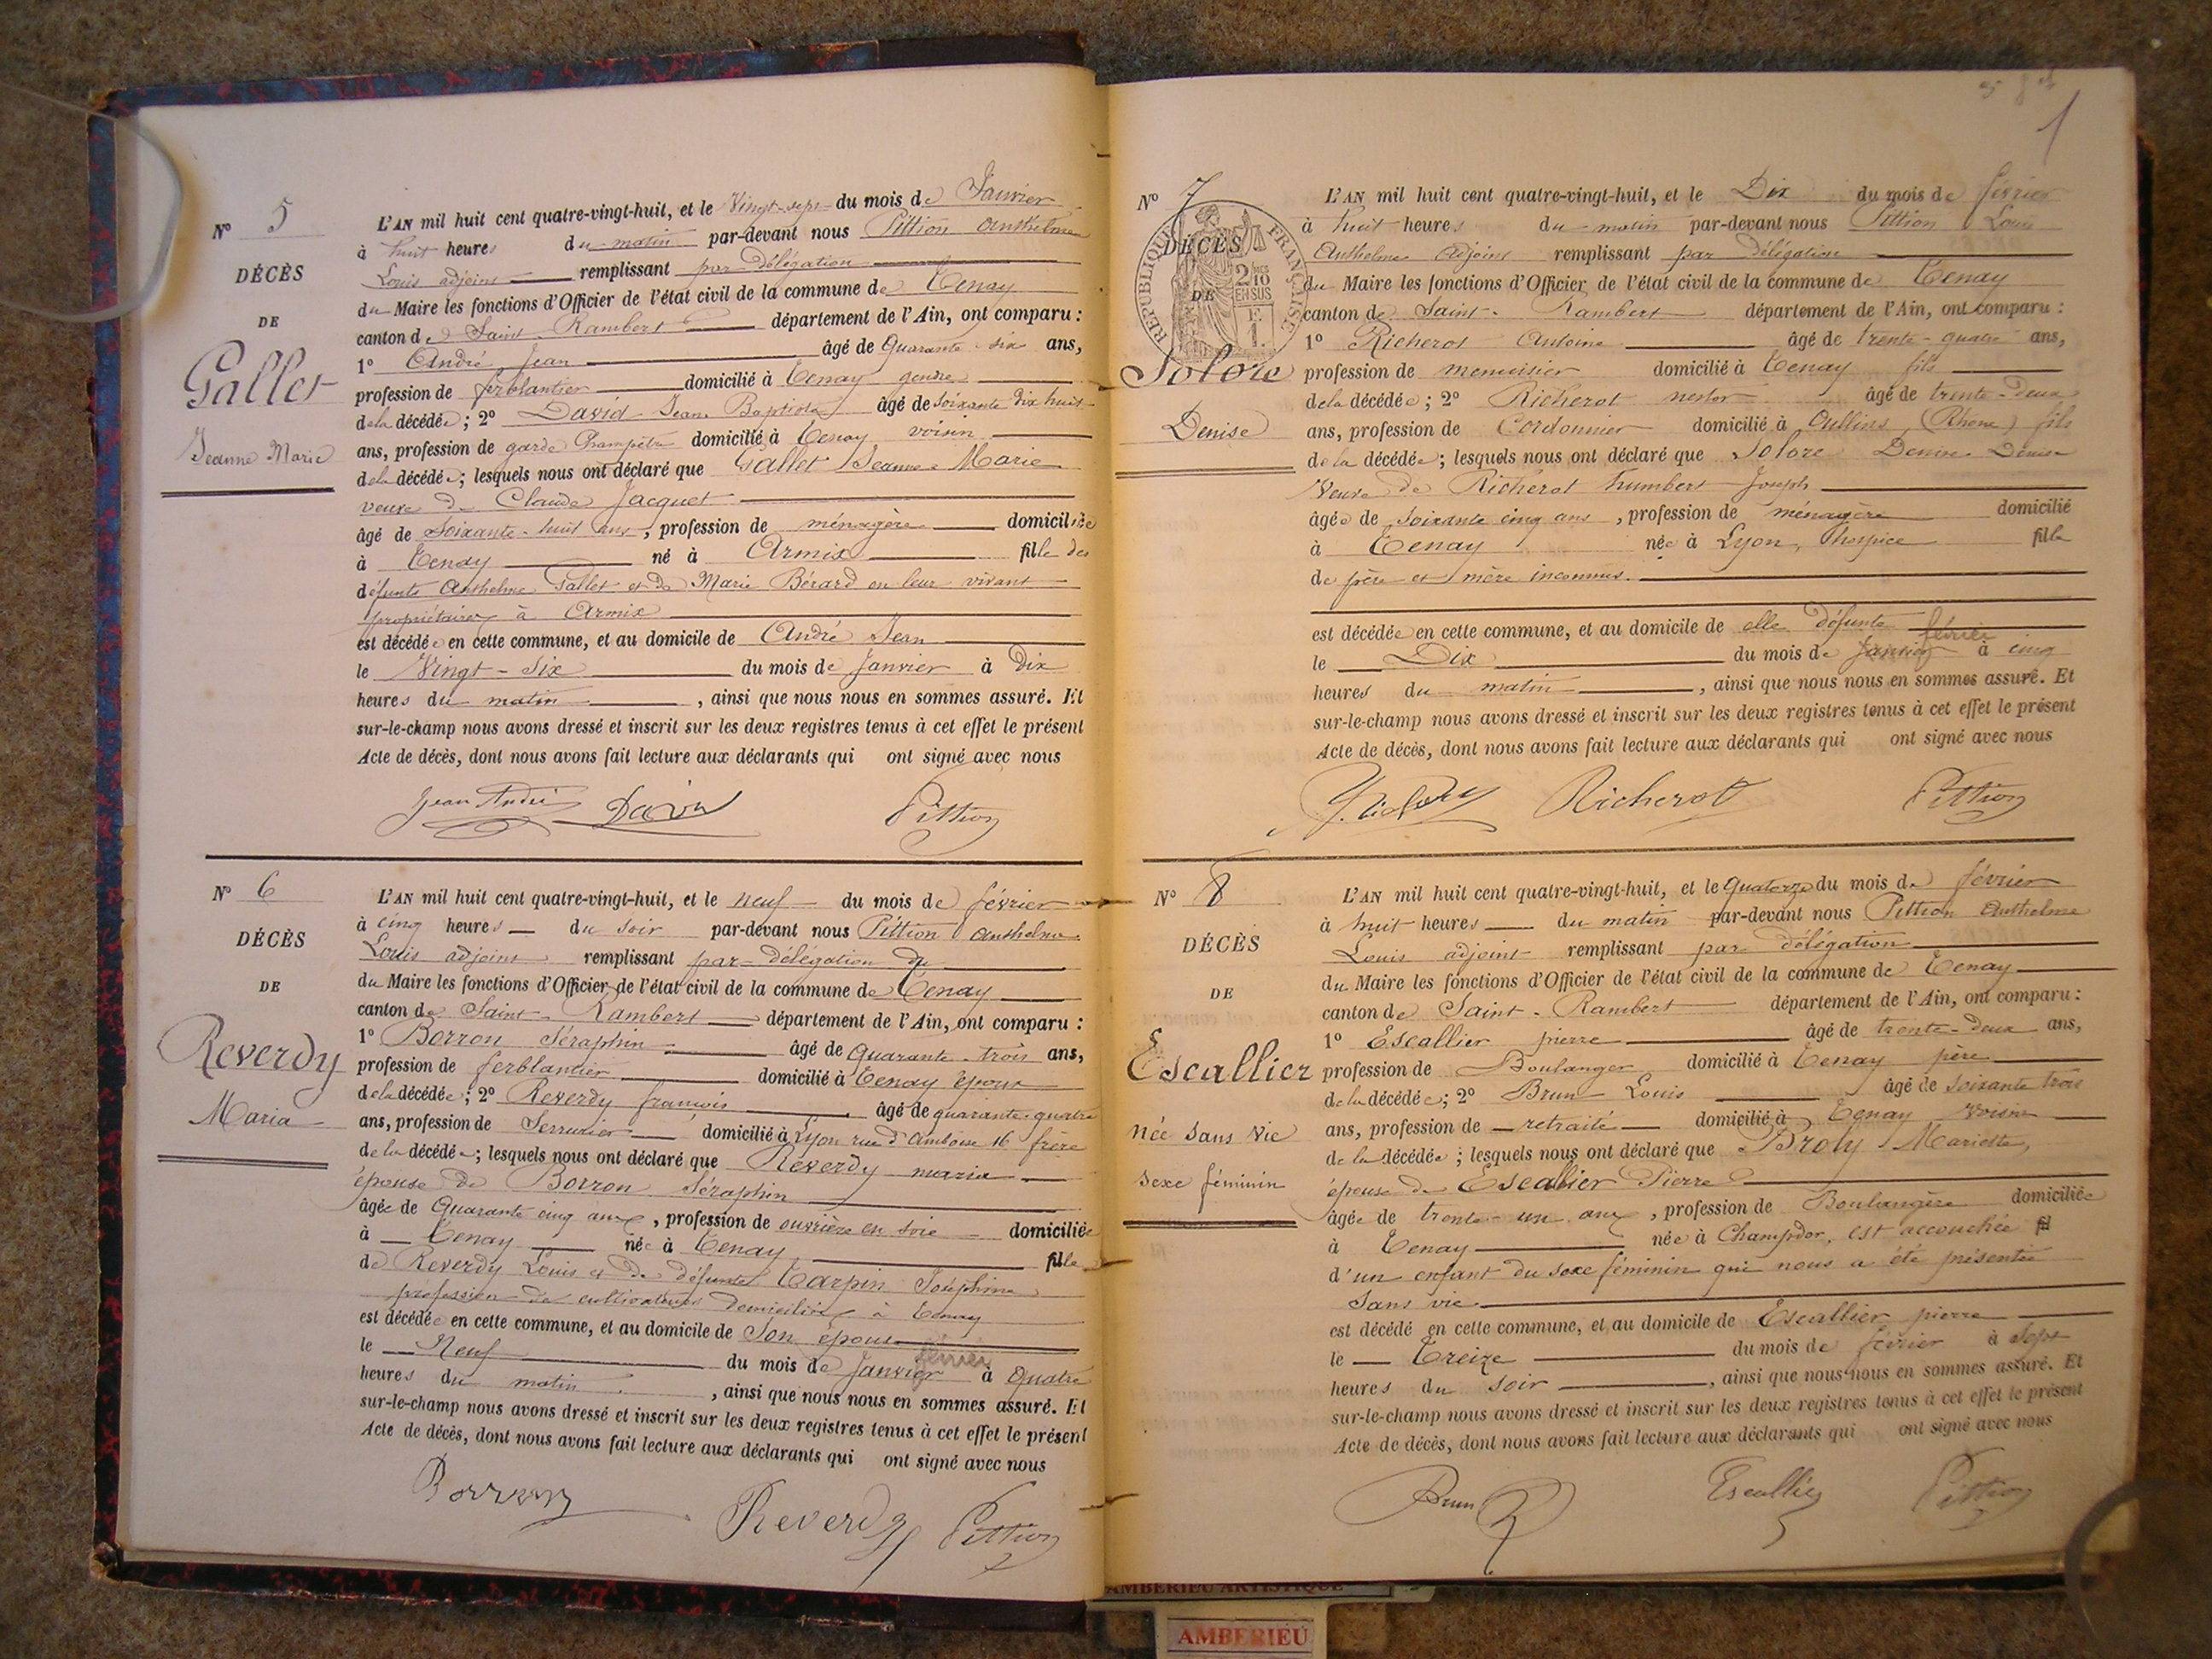 N° 5
DÉCÈS
DE
Gallet
Jeanne Marie
L'AN mil huit cent quatre-vingt-huit, et le Vingt-sept du mois de Janvier
à huit heures du matin par-devant nous Pittion Anthelme
Louis adjoint remplissant par délégation
du Maire les fonctions d'Officier de l'état civil de la commune de Tenay
canton de Saint-Rambert département de l'Ain, ont comparu :
1° André Jean âgé de Quarante-six ans,
profession de ferblantier domicilié à Tenay gendre
de la décédée ; 2° David Jean Baptiste âgé de soixante dix huit
ans, profession de garde Champêtre domicilié à Tenay voisin
de la décédée ; lesquels nous ont déclaré que Gallet Jeanne-Marie
veuve de Claude Jacquet
âgé de soixante-huit ans, profession de ménagère domiciliée
à Tenay né à Armix fille des
défunts Anthelme Gallet et de Marie Bérard en leur vivant
propriétaires à Armix
est décédée en cette commune, et au domicile de André Jean
le Vingt-six du mois de Janvier à Dix
heures du matin, ainsi que nous nous en sommes assuré. Et
sur-le-champ nous avons dressé et inscrit sur les deux registres tenus à cet effet le présent
Acte de décès, dont nous avons fait lecture aux déclarants qui ont signé avec nous
Jean André David Pittion
N° 6
DÉCÈS
DE
Reverdy
Maria
L'AN mil huit cent quatre-vingt-huit, et le neuf du mois de février
à cinq heures du soir par-devant nous Pittion Anthelme
Louis adjoint remplissant par délégation du
du Maire les fonctions d'Officier de l'état civil de la commune de Tenay
canton de Saint-Rambert département de l'Ain, ont comparu :
1° Borron Séraphin âgé de Quarante-trois ans,
profession de ferblantier domicilié à Tenay époux
de la décédée ; 2° Reverdy françois âgé de quarante-quatre
ans, profession de Serrurier domicilié à Lyon rue d'Amboise 16 frère
de la décédée ; lesquels nous ont déclaré que Reverdy maria
épouse de Borron Séraphin
âgée de Quarante cinq ans, profession de ouvrière en soie domiciliée
à Tenay née à Tenay fille
de Reverdy Louis et de défunte Carpin Joséphine
profession de cultivateurs domiciliés à Tenay
est décédée en cette commune, et au domicile de son époux
février
le Neuf du mois de Janvier à Quatre
heures du matin, ainsi que nous nous en sommes assuré. Et
sur-le-champ nous avons dressé et inscrit sur les deux registres tenus à cet effet le présent
Acte de décès, dont nous avons fait lecture aux déclarants qui ont signé avec nous
Borron Reverdy Pittion
1
N° 7
DÉCÈS
DE
RÉPUBLIQUE FRANÇAISE
2/10
EN SUS
F.
1.
Solore
Denise
L'AN mil huit cent quatre-vingt-huit, et le Dix du mois de février
à huit heures du matin par-devant nous Pittion Louis
Anthelme Adjoint remplissant par délégation
du Maire les fonctions d'Officier de l'état civil de la commune de Tenay
canton de Saint-Rambert département de l'Ain, ont comparu :
1° Richerot Antoine âgé de trente-quatre ans,
profession de menuisier domicilié à Tenay fils
de la décédée ; 2° Richerot nestor âgé de trente-deux
ans, profession de Cordonnier domicilié à Oullins (Rhône) fils
de la décédée ; lesquels nous ont déclaré que Solore Denise Denise
Veuve de Richerot humbert Joseph
âgée de soixante cinq ans, profession de ménagère domicilié
à Tenay née à Lyon, l'hospice fille
de père et mère inconnus.
est décédée en cette commune, et au domicile de elle défunte
février
le Dix du mois de Janvier à cinq
heures du matin, ainsi que nous nous en sommes assuré. Et
sur-le-champ nous avons dressé et inscrit sur les deux registres tenus à cet effet le présent
Acte de décès, dont nous avons fait lecture aux déclarants qui ont signé avec nous
Richerot Pittion
N° 8
DÉCÈS
DE
Escallier
née sans vie
sexe féminin
L'AN mil huit cent quatre-vingt-huit, et le Quatorze du mois de février
à huit heures du matin par-devant nous Pittion Anthelme
Louis adjoint remplissant par délégation
du Maire les fonctions d'Officier de l'état civil de la commune de Tenay
canton de Saint-Rambert département de l'Ain, ont comparu :
1° Escallier pierre âgé de trente-deux ans,
profession de Boulanger domicilié à Tenay père
de la décédée ; 2° Brun Louis âgé de soixante trois
ans, profession de retraité domicilié à Tenay voisin
de la décédée ; lesquels nous ont déclaré que Broly Mariette,
épouse de Escallier Pierre
âgée de trente-un ans, profession de Boulangère domiciliée
à Tenay née à Champdor, est accouchée fil
d'un enfant du sexe féminin qui nous a été présentée
sans vie.
est décédé en cette commune, et au domicile de Escallier pierre
le Treize du mois de février à Sept
heures du soir, ainsi que nous nous en sommes assuré. Et
sur-le-champ nous avons dressé et inscrit sur les deux registres tenus à cet effet le présent
Acte de décès, dont nous avons fait lecture aux déclarants qui ont signé avec nous
Brun Escallier Pittion
AMBERIEU ARTISTIQUE
AMBERIEU